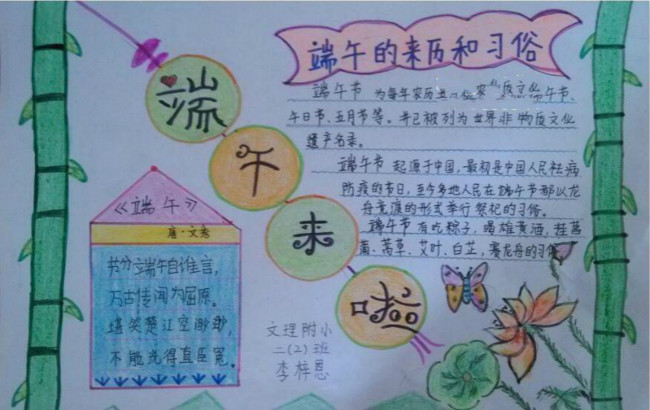 端午的来历和习俗
端午来啦
端午节 为每年农历五
午日节、五月节等。并已被列为世界非物质文化
遗产名录。
端午节 起源于中国,最初是中国人民祛病
防疫的节日,至今各地人民在端午节都以龙
舟竞渡的形式举行祭祀的习俗。
端午节 有吃粽子,喝雄黄酒,挂菖
蒲、蒿草、艾叶、白芷,赛龙舟的习俗
《端午》
唐·文秀
节分端午自谁言,
万古传闻为屈原。
堪笑楚江空渺渺,
不能洗得直臣冤。
文理附小
二(2)班
李梓恩